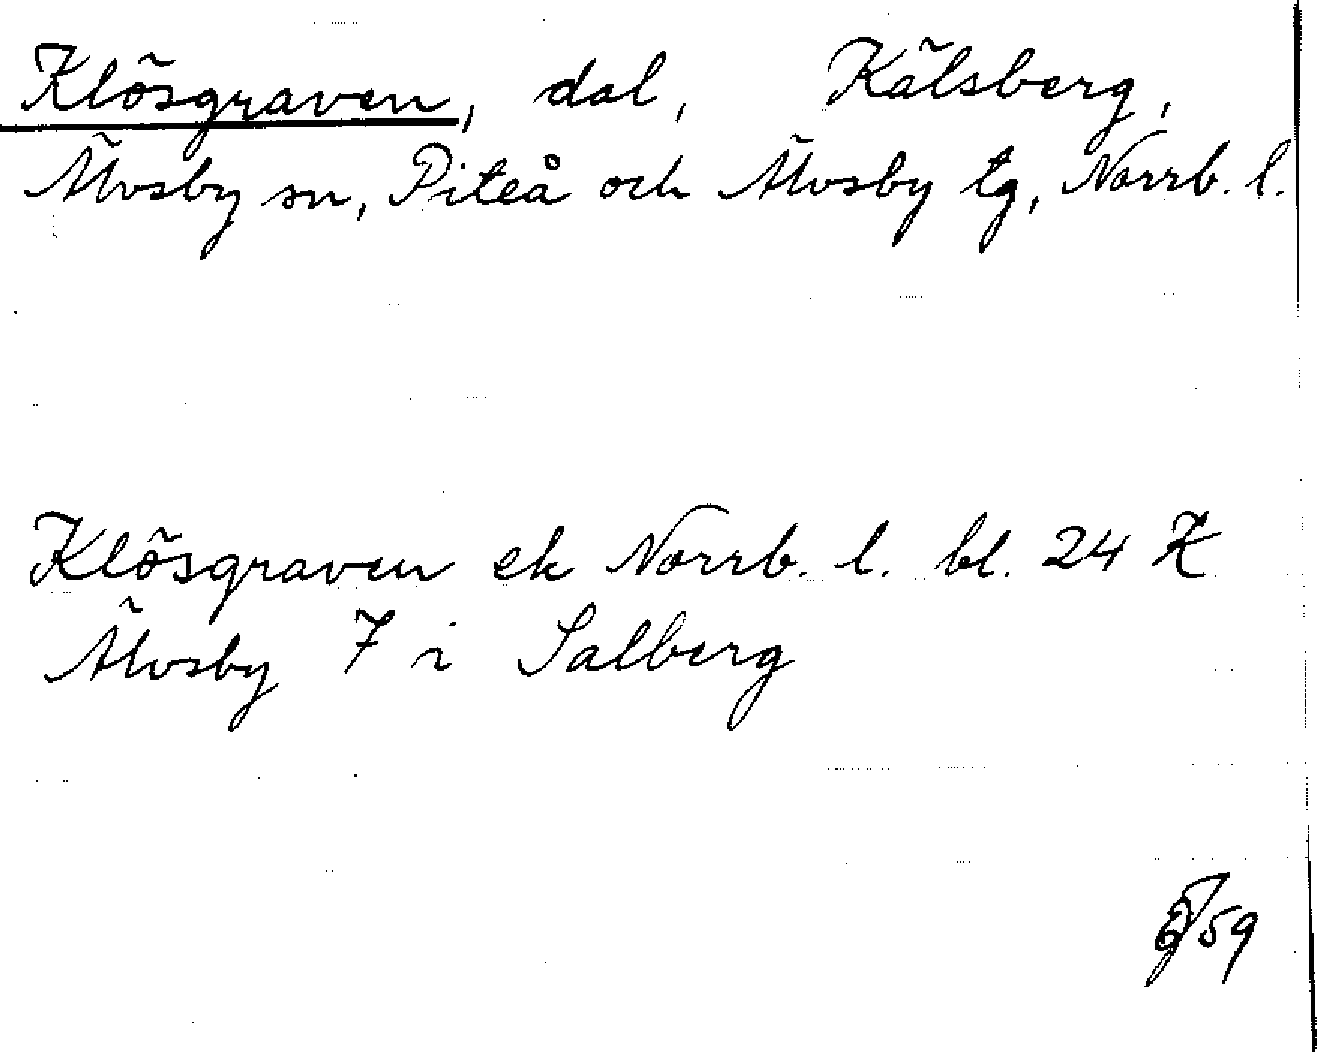 Klösgraven, dal, Kälsberg,
Älvsby sn, Piteå och Älvsby tg, Norrb. l.
Klösgraven ek Norrb. l. bl. 24 K
Älvsby 7 i Salberg
59